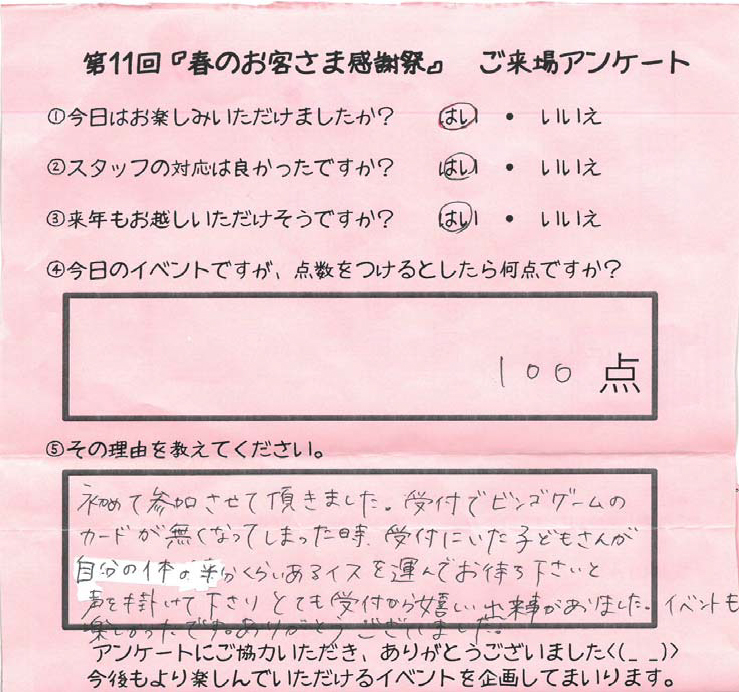 第11回『春のお客さま感謝祭』 ご来場アンケート
①今日はお楽しみいただけましたか? はい ・ いいえ
②スタッフの対応は良かったですか? はい ・ いいえ
③来年もお越しいただけそうですか? はい ・ いいえ
④今日のイベントですが、点数をつけるとしたら何点ですか?
100 点
⑤その理由を教えてください。
初めて参加させて頂きました。受付でビンゴゲームの
カードが無くなってしまった時、受付にいた子どもさんが
自分の体の半分くらいあるイスを運んでお待ち下さいと
声を掛けて下さり とても受付から嬉しい出来事がありました。イベントも
楽しかったです。ありがとうございました。
アンケートにご協力いただき、ありがとうございました<(_ _)>
今後もより楽しんでいただけるイベントを企画してまいります。